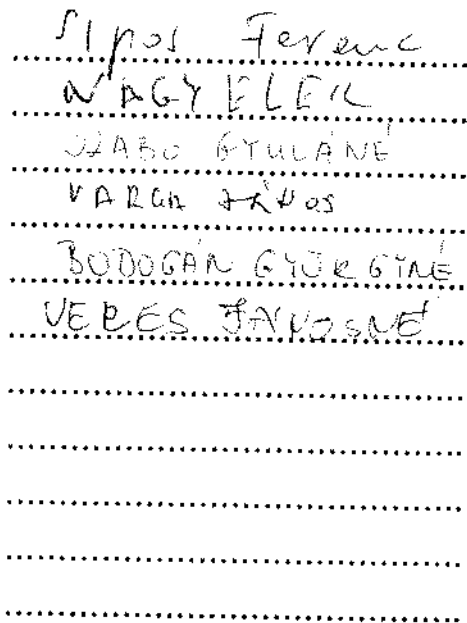 Sipos Ferenc
NAGY ELEK
SZABO GYULÁNÉ
VARGA JÁNOS
BODOGÁN GYÖRGYNÉ
VERES JÁNOSNÉ